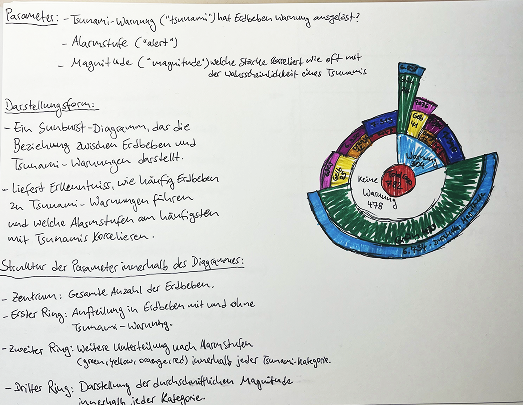 Parameter: - Tsunami-Warnung ("tsunami") hat Erdbeben Warnung ausgelöst?
- Alarmstufe ("alert")
- Magnitude ("magnitude") welche Stärke korreliert wie oft mit
der Wahrscheinlichkeit eines Tsunamis
Darstellungsform:
- Ein Sunburst-Diagramm, das die
Beziehung zwischen Erdbeben und
Tsunami-Warnungen darstellt.
- Liefert Erkenntniss, wie häufig Erdbeben
zu Tsunami-Warnungen führen
und welche Alarmstufen am häufigsten
mit Tsunamis korrelieren.
Struktur der Parameter innerhalb des Diagrammes:
- Zentrum: Gesamte Anzahl der Erdbeben.
- Erster Ring: Aufteilung in Erdbeben mit und ohne
Tsunami-Warnung.
- Zweiter Ring: Weitere Unterteilung nach Alarmstufen
(green, yellow, orange, red) innerhalb jeder Tsunami-Kategorie.
- Dritter Ring: Darstellung der durchschnittlichen Magnitude
innerhalb jeder Kategorie.
Warnung
Keine
Warnung
478